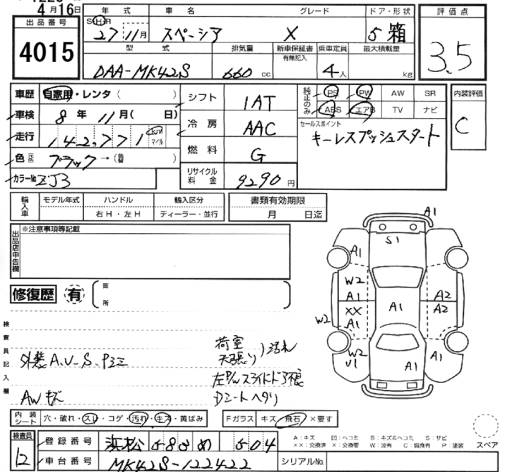 4月16日
出品番号
4015
年式 車名 グレード ドア・形状
27年11月 スペーシア X 5 箱
型式 排気量 新車保証書 有無記入 乗車定員 最大積載量
DAA-MK42S 660 cc 4人 kg
評価点
3.5
車歴 自家用・レンタ( )
車検 8年11月( 日)
走行 142,771
色 ブラック→( )
カラーNo ZJ3
シフト 1AT
冷房 AAC
燃料 G
リサイクル料金 9290円
純正のみ PS PW AW SR
ABS エアB TV ナビ
セールスポイント
キーレスプッシュスタート
内装評価
C
輸入車 モデル年式 ハンドル 輸入区分 書類有効期限
右H・左H ディーラー・並行 月 日迄
出品店申告欄 ※注意事項等記載
修復歴 有
箇所
検査員記入欄
外装A.U.S.P.ミニ
AWキズ
荷室 天張り 汚れ
左Rrスライドドア傷
Dシートヘタリ
A1
S1
A1 A1
W2
A1 A1 A2
XX A2
W2 A1
W2
U1 A1
A1
内装シート 穴・破れ・スレ・コゲ・汚れ・キズ・黄ばみ
Fガラス キズ・飛石・×要す
スペア
検査員 12
登録番号 浜松 583 め 504
車台番号 MK42S-122422
シリアルNo.